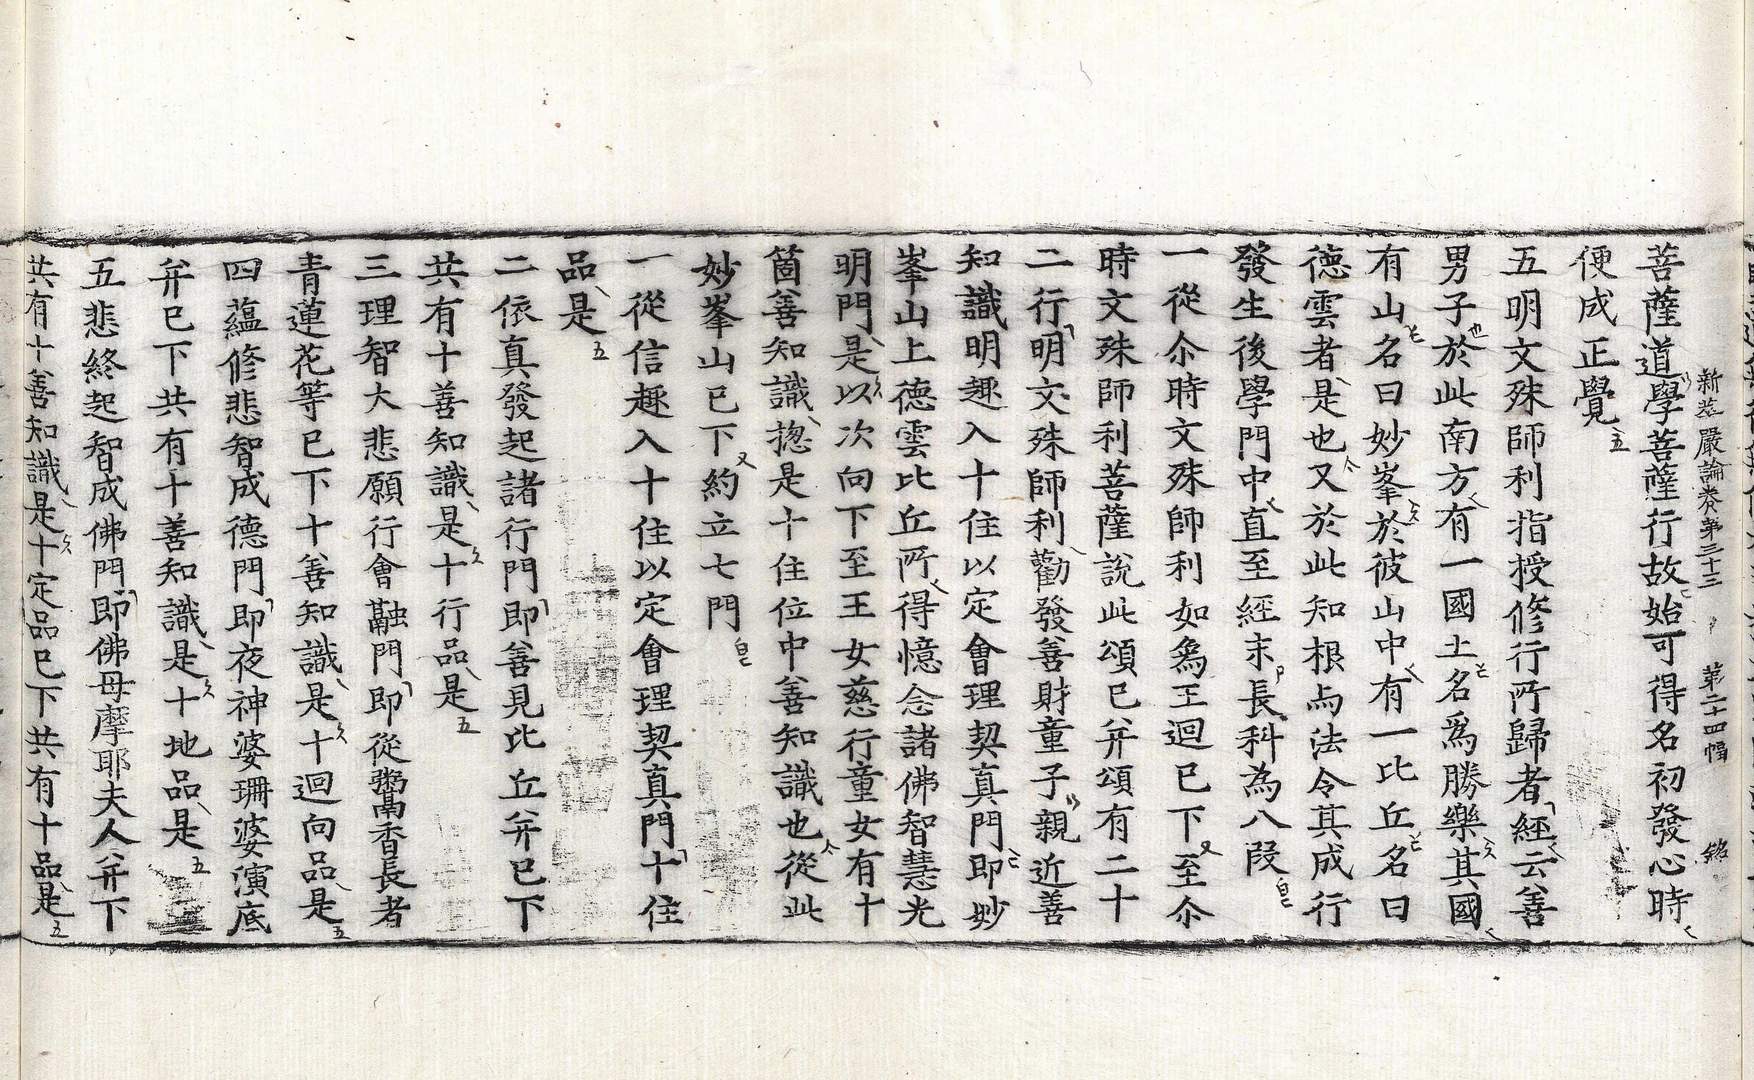 菩薩道學菩薩行故始可得名初發心時
新華嚴論卷第三十三 第二十四幅 銘
便成正覺
五明文殊師利指授修行所歸者經云善
男子於此南方有一國土名爲勝樂其國
有山名曰妙峯於彼山中有一比丘名曰
德雲者是也又於此知根与法令其成行
發生後學門中直至經末長科為八段
一從尒時文殊師利如爲王迴已下至尒
時文殊師利菩薩說此頌已并頌有二十
二行明文殊師利勸發善財童子親近善
知識明趣入十住以定會理契真門即妙
峯山上德雲比丘所得憶念諸佛智慧光
明門是以次向下至王女慈行童女有十
箇善知識揔是十住位中善知識也從此
妙峯山已下約立七門
一從信趣入十住以定會理契真門十住
品是
二依真發起諸行門即善見比丘并已下
共有十善知識是十行品是
三理智大悲願行會融門即從鬻香長者
青蓮花等已下十善知識是十迴向品是
四蘊修悲智成德門即夜神婆珊婆演底
并已下共有十善知識是十地品是
五悲終起智成佛門即佛母摩耶夫人并下
共有十善知識是十定品已下共有十品是